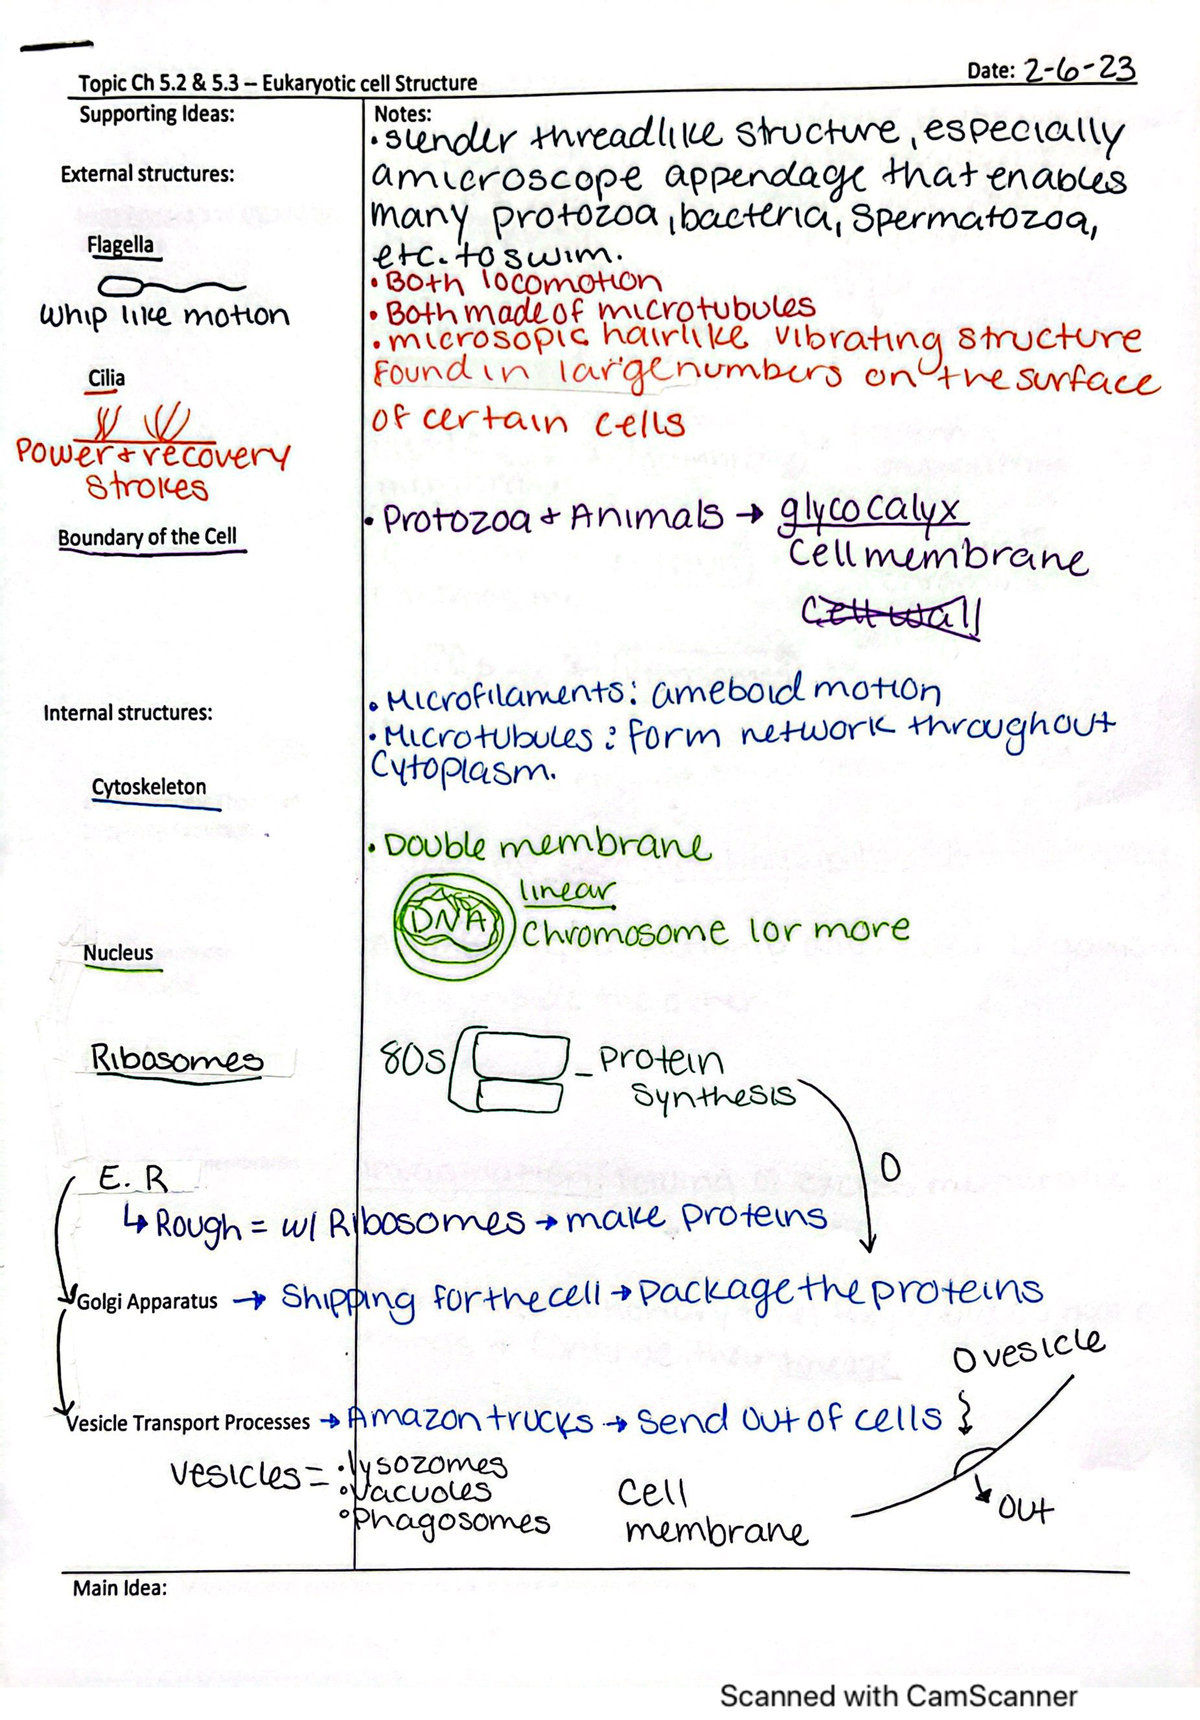 Topic Ch 5.2 & 5.3 – Eukaryotic cell Structure
Date: 2-6-23
Supporting Ideas:
Notes:
• slender threadlike structure, especially
External structures:
amicroscope appendage that enables
many protozoa, bacteria, spermatozoa,
Flagella
etc. to swim.
• Both locomotion
Whip like motion
• Both made of microtubules
• microsopic hairlike vibrating structure
Cilia
Found in large numbers on the surface
of certain cells
Power + recovery
strokes
Boundary of the Cell
• Protozoa + Animals → glycocalyx
Cell membrane
Cell wall
Internal structures:
• Microfilaments: ameboid motion
• Microtubules: form network throughout
Cytoplasm.
Cytoskeleton
• Double membrane
linear
DNA
Chromosome 1 or more
Nucleus
Ribosomes
80S
- Protein
Synthesis
E.R
↳ Rough = w/ Ribosomes → make proteins
Golgi Apparatus → Shipping for the cell → Package the proteins
vesicle
Vesicle Transport Processes → Amazon trucks → Send out of cells
vesicles = • lysozomes
• vacuoles
• phagosomes
Cell
membrane
out
Main Idea:
Scanned with CamScanner